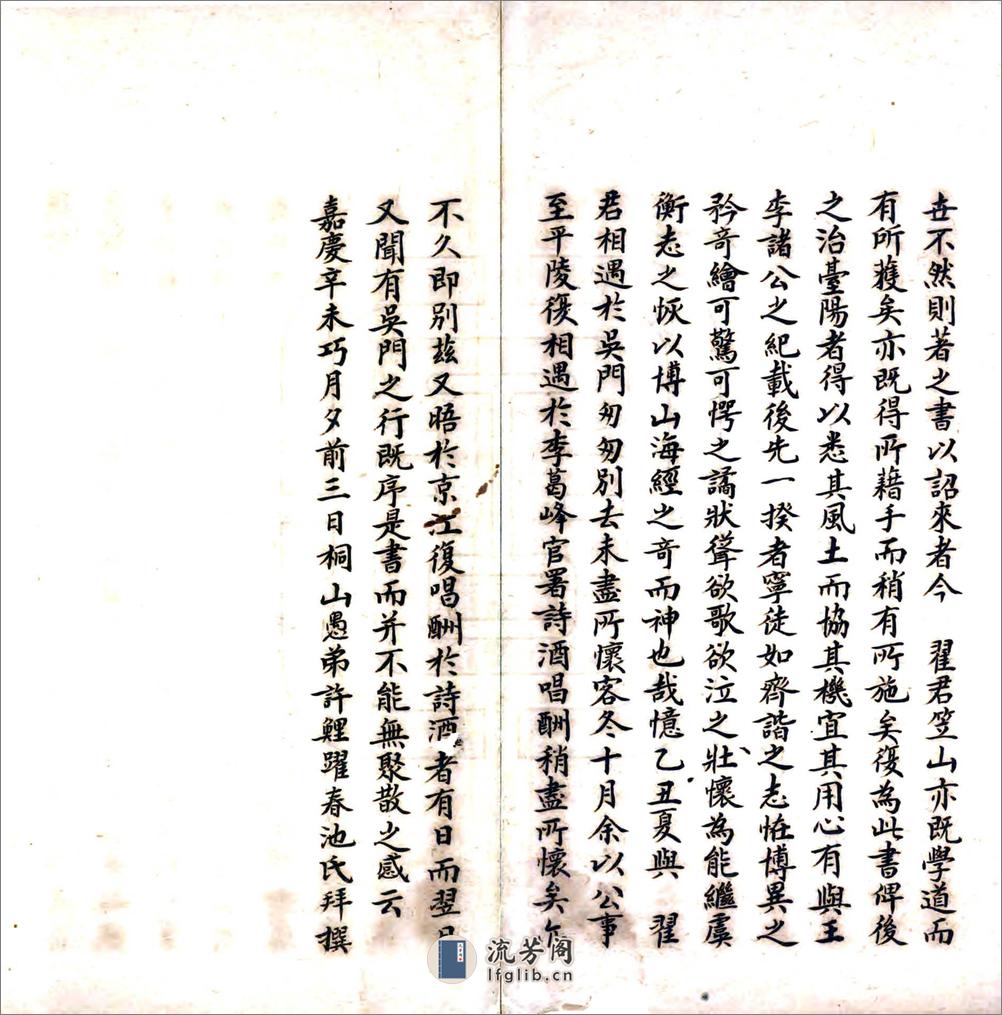 世不然則著之書以詔來者今　翟君笠山亦既學道而
有所獲矣亦既得所藉手而稍有所施矣復為此書俾後
之治臺陽者得以悉其風土而協其機宜其用心有與王
李諸公之紀載後先一揆者寧徒如齊諧之志恠博異之
矜奇繪可驚可愕之譎狀聳欲歌欲泣之壯懷為能繼虞
衡志之恢以博山海經之奇而神也哉憶乙丑夏與　翟
君相遇於吳門匆匆別去未盡所懷客冬十月余以公事
至平陵復相遇於李葛峰官署詩酒唱酬稍盡所懷矣
不久即別茲又晤於京江復唱酬於詩酒者有日而翌日
又聞有吳門之行既序是書而并不能無聚散之感云
嘉慶辛未巧月夕前三日桐山愚弟許鯉躍春池氏拜撰
流芳阁
lfglib.cn